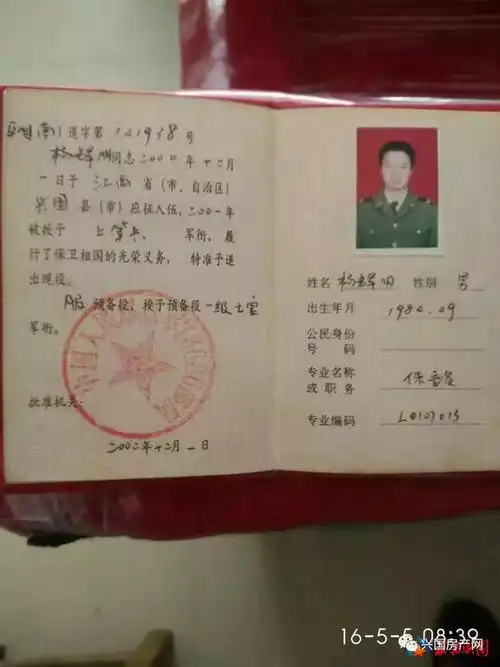 退字第121938号
同志二〇〇〇年十二月
一日于江西省(市、自治区)
兴国县(市)应征入伍,二〇〇一年
被授予上等兵军衔,履
行了保卫祖国的光荣义务,特准予退
出现役。
服预备役,授予预备役一级士官
军衔。
批准机关:
二〇〇二年十二月一日
姓名 杨 明 性别 男
出生年月 1982.09
公民身份
号码
专业名称
或职务
专业编码 L0107013
16-5-5 08:39
兴国房产网